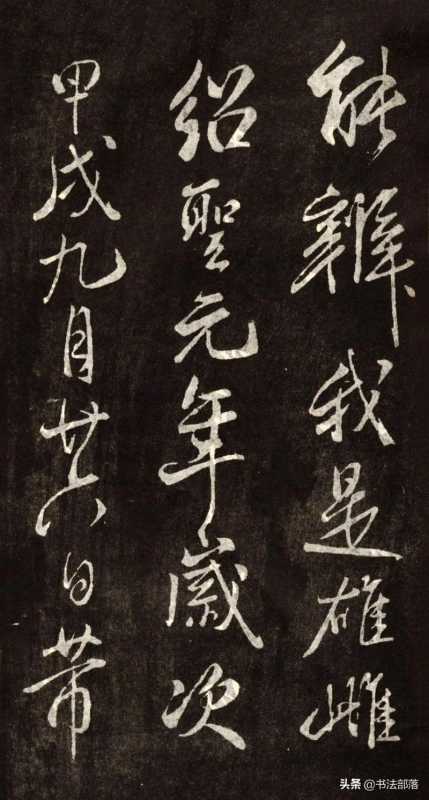 能辨我是雄雌
紹聖元年歲次
甲戌九月廿六日帶
头条 @书法部落